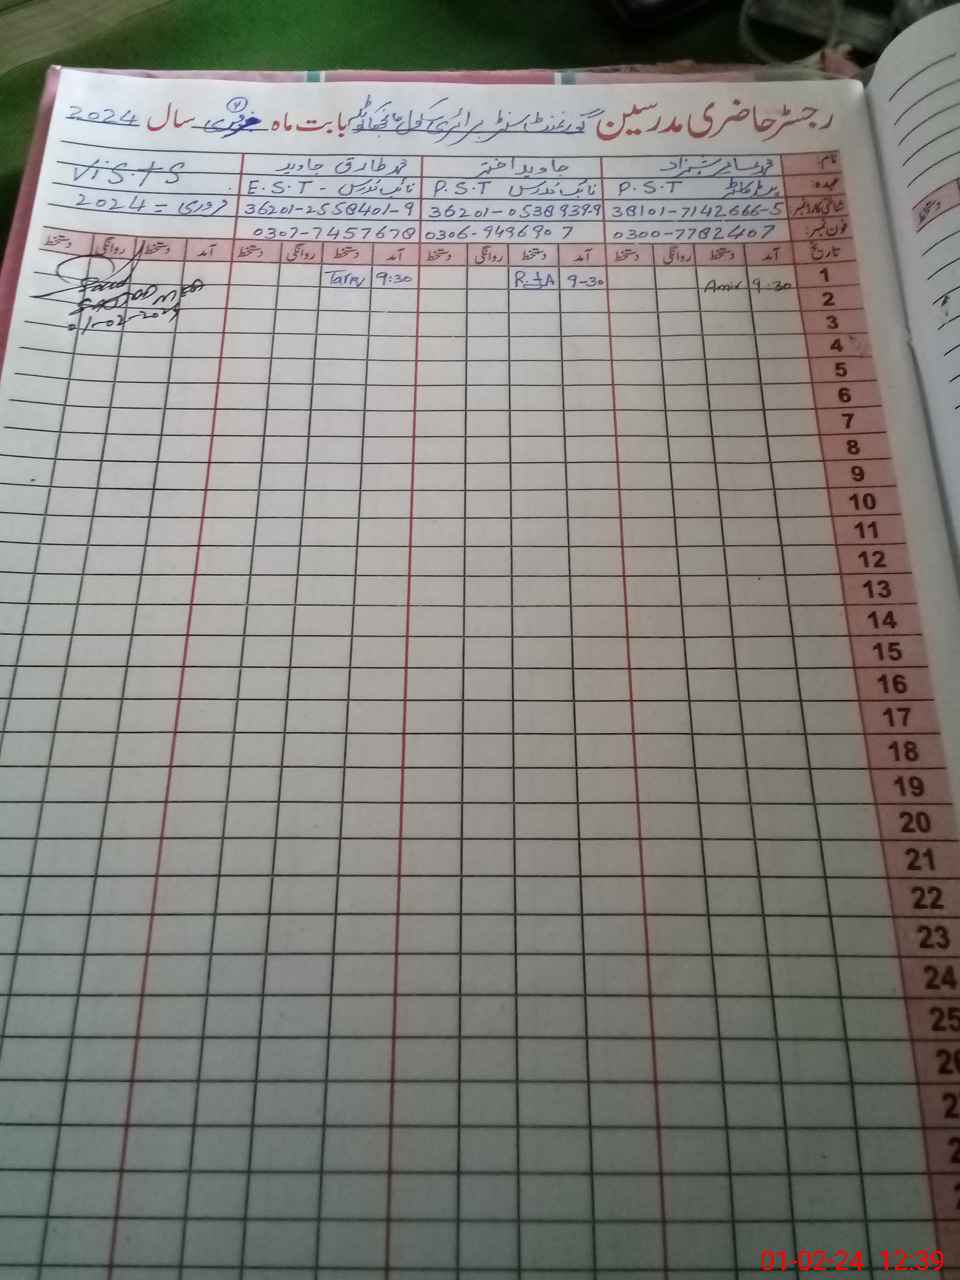 رجسٹر حاضری مدرسین گورنمنٹ سنٹر پرائمری سکول بابت ماہ فروری سال 2024
نام: محمد عامر شہزاد جاوید اختر محمد طارق جاوید Visits
عہدہ: P.S.T نائب مدرس P.S.T نائب مدرس - E.S.T
شناختی کارڈ نمبر 38101-7142666-5 36201-0538939-9 36201-2558401-9 فروری = 2024
فون نمبر: 0300-7782407 0306-9496907 0307-7457678
تاریخ آمد دستخط روانگی دستخط آمد دستخط روانگی دستخط آمد دستخط روانگی دستخط آمد دستخط روانگی دستخط
1 9:30 Amir 9-30 9:30
2
01-02-2024
3
4
5
6
7
8
9
10
11
12
13
14
15
16
17
18
19
20
21
22
23
24
25
دستخط
01-02-24 12:39